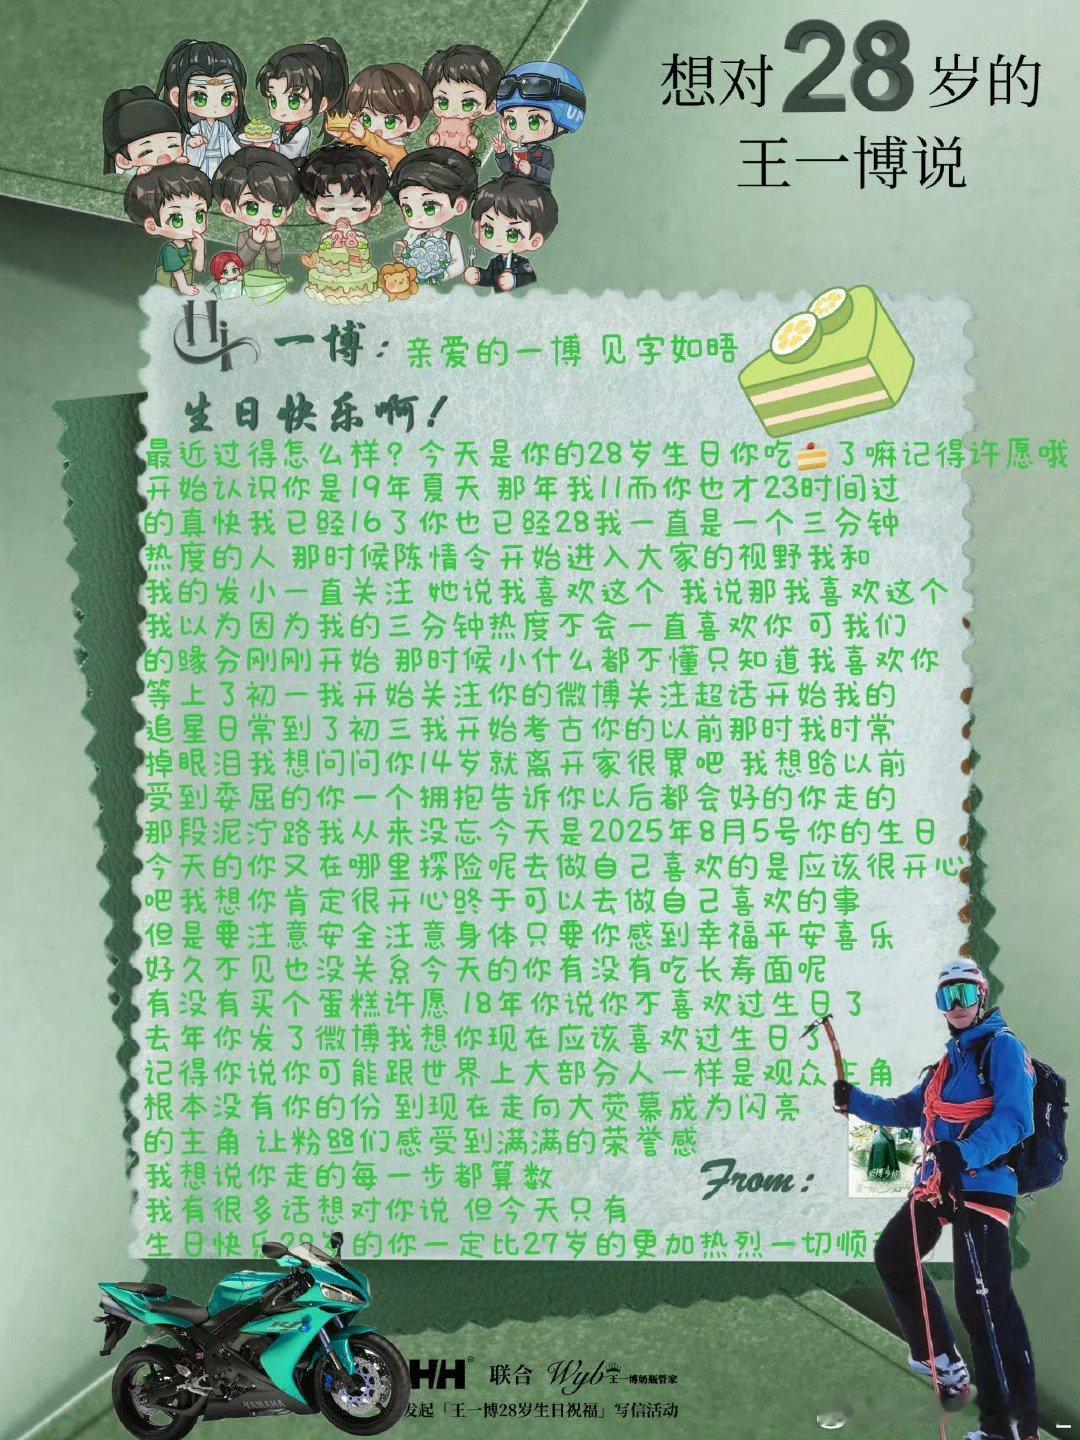 想对28岁的
王一博说
28
Hi 一博：亲爱的一博 见字如晤
生日快乐啊！
最近过得怎么样？今天是你的28岁生日你吃🍰了嘛记得许愿哦
开始认识你是19年夏天 那年我11而你也才23时间过
的真快我已经16了你也已经28我一直是一个三分钟
热度的人 那时候陈情令开始进入大家的视野我和
我的发小一直关注 她说我喜欢这个 我说那我喜欢这个
我以为因为我的三分钟热度不会一直喜欢你 可我们
的缘分刚刚开始 那时候小什么都不懂只知道我喜欢你
等上了初一我开始关注你的微博关注超话开始我的
追星日常到了初三我开始考古你的以前那时我时常
掉眼泪我想问问你14岁就离开家很累吧 我想给以前
受到委屈的你一个拥抱告诉你以后都会好的你走的
那段泥泞路我从来没忘今天是2025年8月5号你的生日
今天的你又在哪里探险呢去做自己喜欢的是应该很开心
吧我想你肯定很开心终于可以去做自己喜欢的事
但是要注意安全注意身体只要你感到幸福平安喜乐
好久不见也没关系今天的你有没有吃长寿面呢
有没有买个蛋糕许愿 18年你说你不喜欢过生日了
去年你发了微博我想你现在应该喜欢过生日了
记得你说你可能跟世界上大部分人一样是观众主角
根本没有你的份 到现在走向大荧幕成为闪亮
的主角 让粉丝们感受到满满的荣誉感
我想说你走的每一步都算数
From：
我有很多话想对你说 但今天只有
生日快乐28岁的你一定比27岁的更加热烈一切顺
YAMAHA
HH® 联合 Wyb王一博奶瓶管家
发起「王一博28岁生日祝福」写信活动